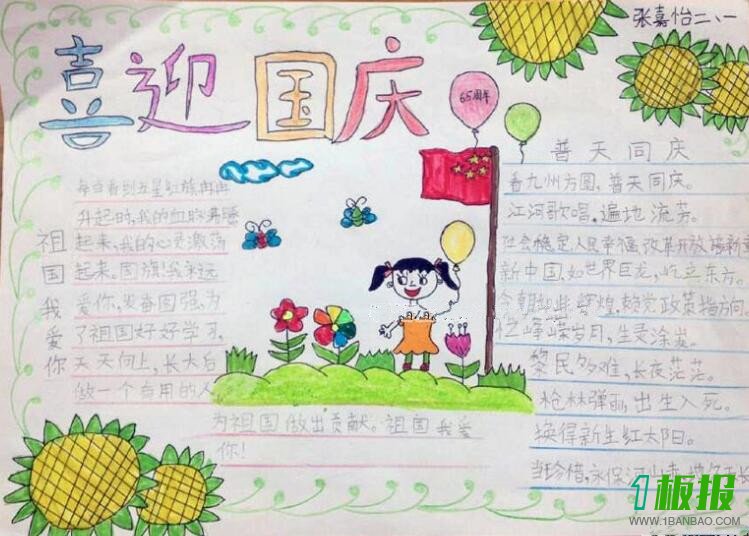 张嘉怡二、一
喜迎国庆
65周年
祖国我爱你
每当看到五星红旗冉冉
升起时,我的血脉
起来,我的心灵激荡
起来,国旗!我永远
爱你,发奋图强,为
了祖国好好学习,
天天向上,长大后
做一个有用的人
为祖国做出贡献。祖国我爱
你!
普天同庆
看九州方圆,普天同庆。
江河歌唱,遍地流芳。
社会稳定人民幸福,改革开放
新中国,如世界巨龙,屹立东方。
辉煌,党政策指方向
峥嵘岁月,生灵涂炭。
黎民多难,长夜茫茫。
枪林弹雨,出生入死。
换得新生红太阳。
当珍惜,永保河山
1板报
WWW.1BANBAO.COM